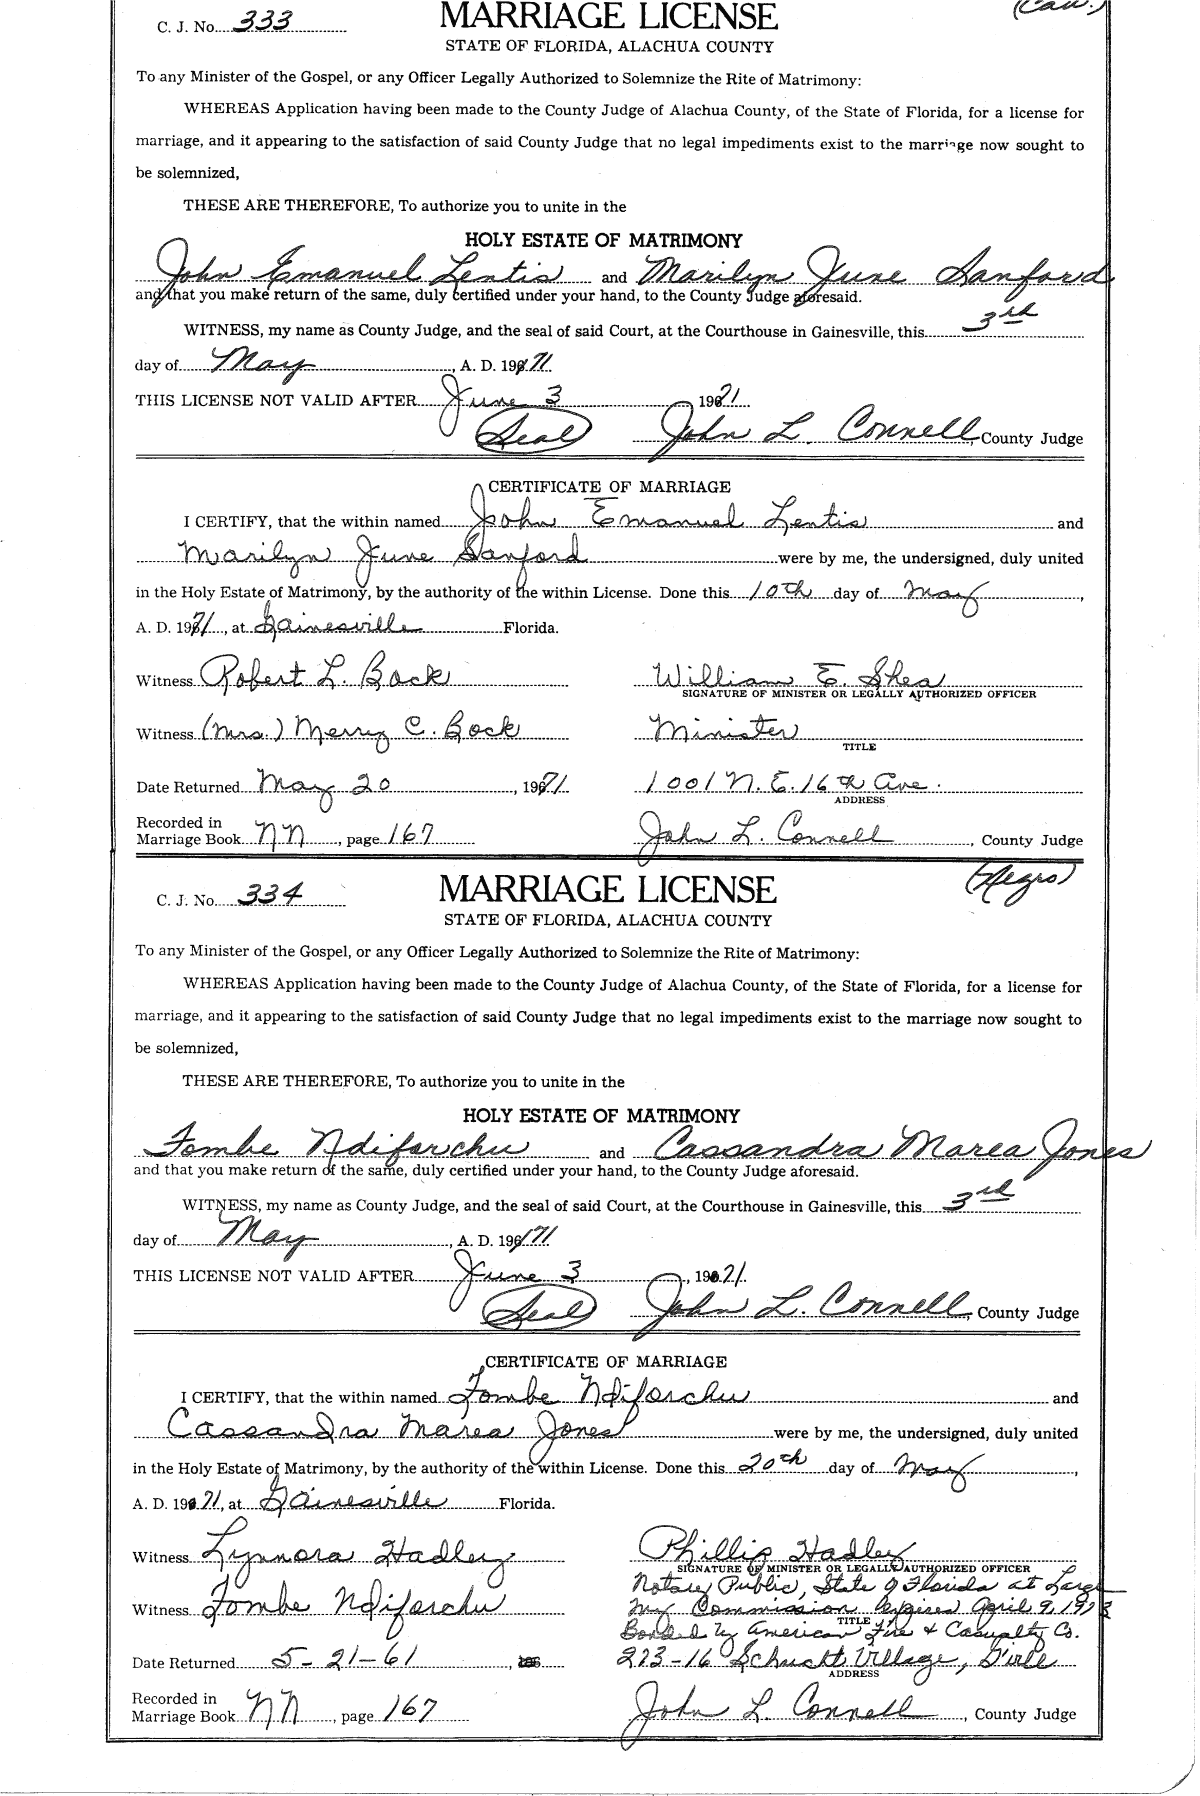 (Cau.)
C. J. No. 333
MARRIAGE LICENSE
STATE OF FLORIDA, ALACHUA COUNTY
To any Minister of the Gospel, or any Officer Legally Authorized to Solemnize the Rite of Matrimony:
WHEREAS Application having been made to the County Judge of Alachua County, of the State of Florida, for a license for
marriage, and it appearing to the satisfaction of said County Judge that no legal impediments exist to the marriage now sought to
be solemnized,
THESE ARE THEREFORE, To authorize you to unite in the
HOLY ESTATE OF MATRIMONY
John Emanuel Lentis and Marilyn June Sanford
and that you make return of the same, duly certified under your hand, to the County Judge aforesaid.
WITNESS, my name as County Judge, and the seal of said Court, at the Courthouse in Gainesville, this 3rd
day of May, A. D. 1971
THIS LICENSE NOT VALID AFTER June 3 1971
(Seal) John L. Connell County Judge
CERTIFICATE OF MARRIAGE
I CERTIFY, that the within named John Emanuel Lentis and
Marilyn June Sanford were by me, the undersigned, duly united
in the Holy Estate of Matrimony, by the authority of the within License. Done this 10th day of May,
A. D. 1971, at Gainesville Florida.
Witness Robert L. Bock William E. Shea
SIGNATURE OF MINISTER OR LEGALLY AUTHORIZED OFFICER
Witness (Mrs.) Merry C. Bock Minister
TITLE
Date Returned May 20, 1971 1001 N. E. 16th Ave.
ADDRESS
Recorded in
Marriage Book NN, page 167 John L. Connell, County Judge
(Negro)
C. J. No. 334
MARRIAGE LICENSE
STATE OF FLORIDA, ALACHUA COUNTY
To any Minister of the Gospel, or any Officer Legally Authorized to Solemnize the Rite of Matrimony:
WHEREAS Application having been made to the County Judge of Alachua County, of the State of Florida, for a license for
marriage, and it appearing to the satisfaction of said County Judge that no legal impediments exist to the marriage now sought to
be solemnized,
THESE ARE THEREFORE, To authorize you to unite in the
HOLY ESTATE OF MATRIMONY
Fombe Ndiforchu and Cassandra Marea Jones
and that you make return of the same, duly certified under your hand, to the County Judge aforesaid.
WITNESS, my name as County Judge, and the seal of said Court, at the Courthouse in Gainesville, this 3rd
day of May, A. D. 1971
THIS LICENSE NOT VALID AFTER June 3, 1971
(Seal) John L. Connell, County Judge
CERTIFICATE OF MARRIAGE
I CERTIFY, that the within named Fombe Ndiforchu and
Cassandra Marea Jones were by me, the undersigned, duly united
in the Holy Estate of Matrimony, by the authority of the within License. Done this 20th day of May,
A. D. 1971, at Gainesville Florida.
Witness Lynnora Hadley Phillip Hadley
SIGNATURE OF MINISTER OR LEGALLY AUTHORIZED OFFICER
Notary Public, State of Florida at Large
Witness Fombe Ndiforchu My Commission Expires April 9, 1973
TITLE
Bonded by American Fire & Casualty Co.
Date Returned 5-21-61, 273-16 Village, G'ville
ADDRESS
Recorded in
Marriage Book NN, page 167 John L. Connell, County Judge